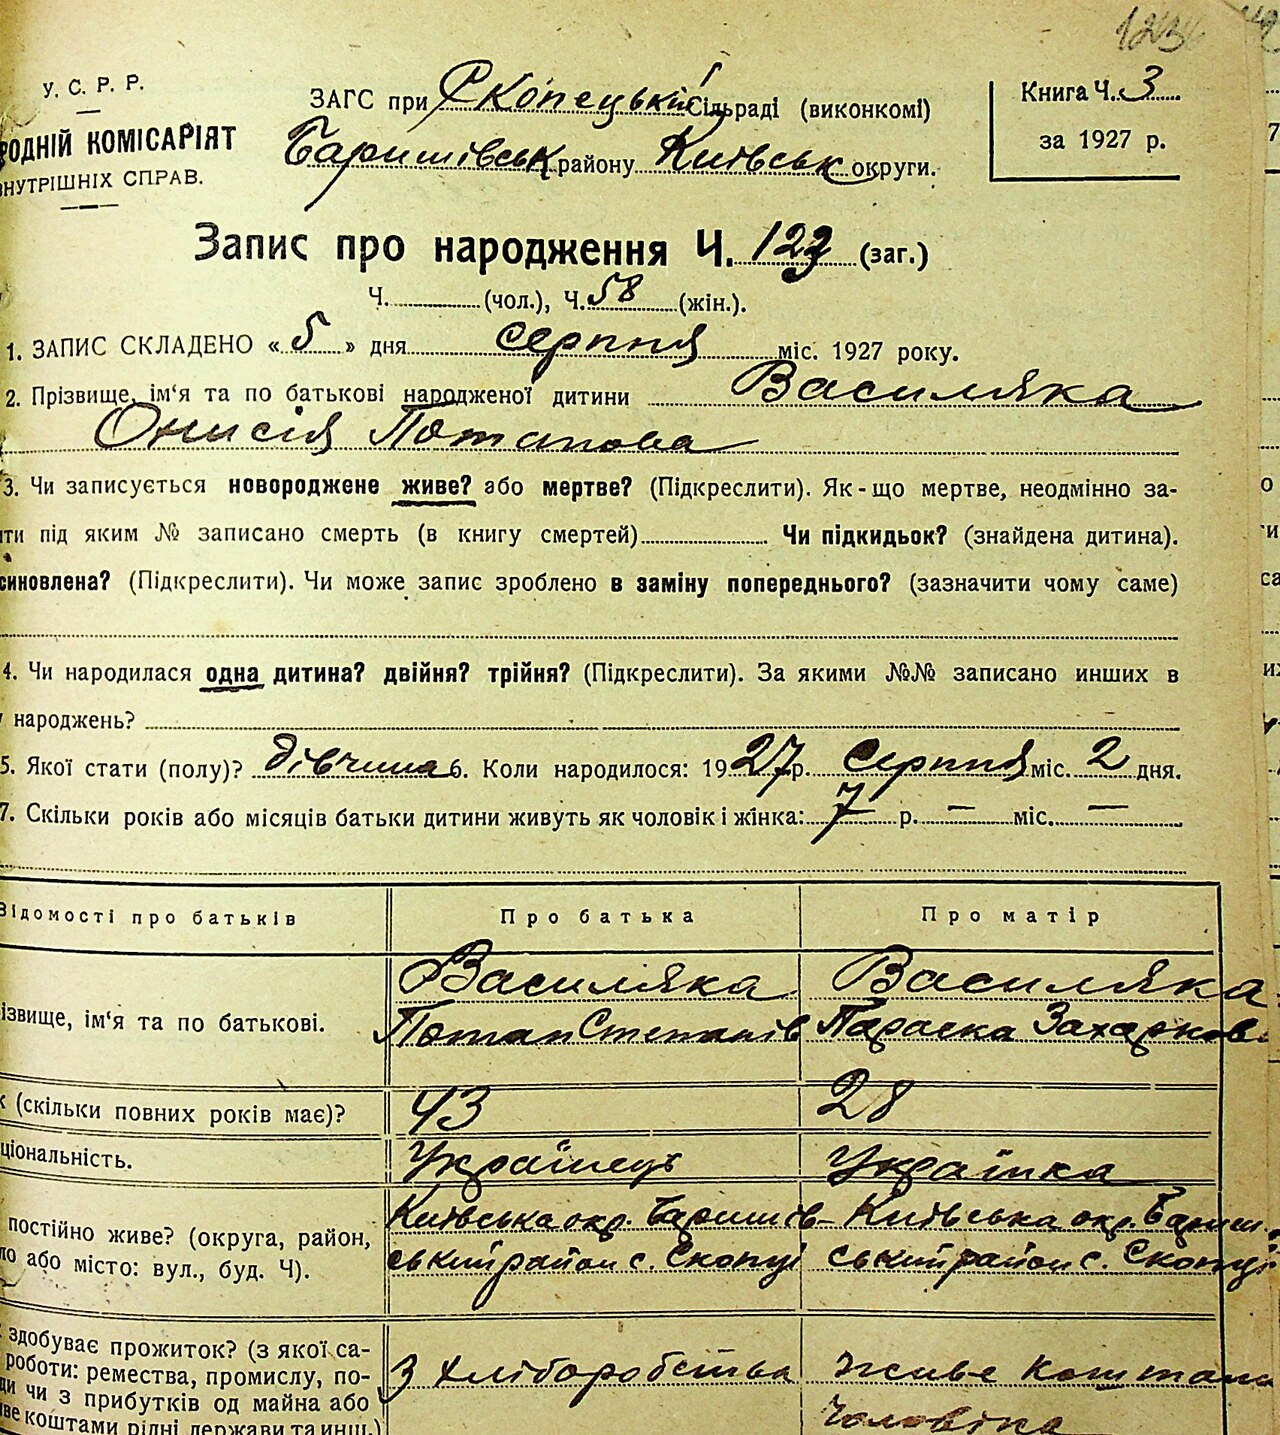 123
У. С. Р. Р.
РОДНІЙ КОМІСАРІЯТ
ВНУТРІШНІХ СПРАВ.
ЗАГС при Скопецькій Сільраді (виконкомі)
Баришівськ району Київськ округи.
Книга Ч. 3
за 1927 р.
Запис про народження Ч. 123 (заг.)
Ч. (чол.), Ч. 58 (жін.).
1. ЗАПИС СКЛАДЕНО « 5 » дня серпня міс. 1927 року.
2. Прізвище, ім'я та по батькові народженої дитини Василяка
Онисія Потапова
3. Чи записується новороджене живе? або мертве? (Підкреслити). Як-що мертве, неодмінно за-
ти під яким № записано смерть (в книгу смертей) Чи підкидьок? (знайдена дитина).
синовлена? (Підкреслити). Чи може запис зроблено в заміну попереднього? (зазначити чому саме)
4. Чи народилася одна дитина? двійня? трійня? (Підкреслити). За якими №№ записано инших в
народжень?
5. Якої стати (полу)? дівчина 6. Коли народилося: 1927 р. Серпня міс. 2 дня.
7. Скільки років або місяців батьки дитини живуть як чоловік і жінка: 7 р. — міс. —
Відомості про батьків Про батька Про матір
ізвище, ім'я та по батькові.
Василяка Василяка
Потап Степанів Параска Захарков
к (скільки повних років має)? 43 28
ціональність. Українець Українка
постійно живе? (округа, район,
ло або місто: вул., буд. Ч).
Київська окр. Баришів- Київська окр. Бариш.
ський район с. Скопці ський район с. Скопці
здобуває прожиток? (з якої са-
роботи: ремества, промислу, по-
ди чи з прибутків од майна або
ве коштами рідні держави та инш.)
З хліборобства живе коштами
чоловіка